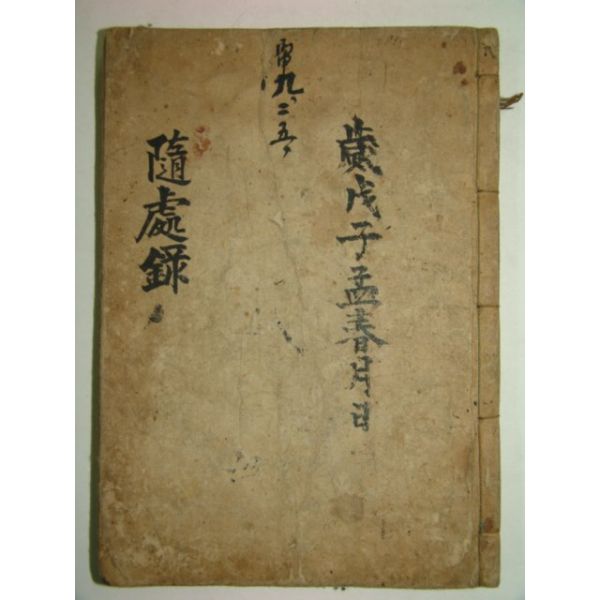 歲戊子孟春月日
九、二五、
隨處錄